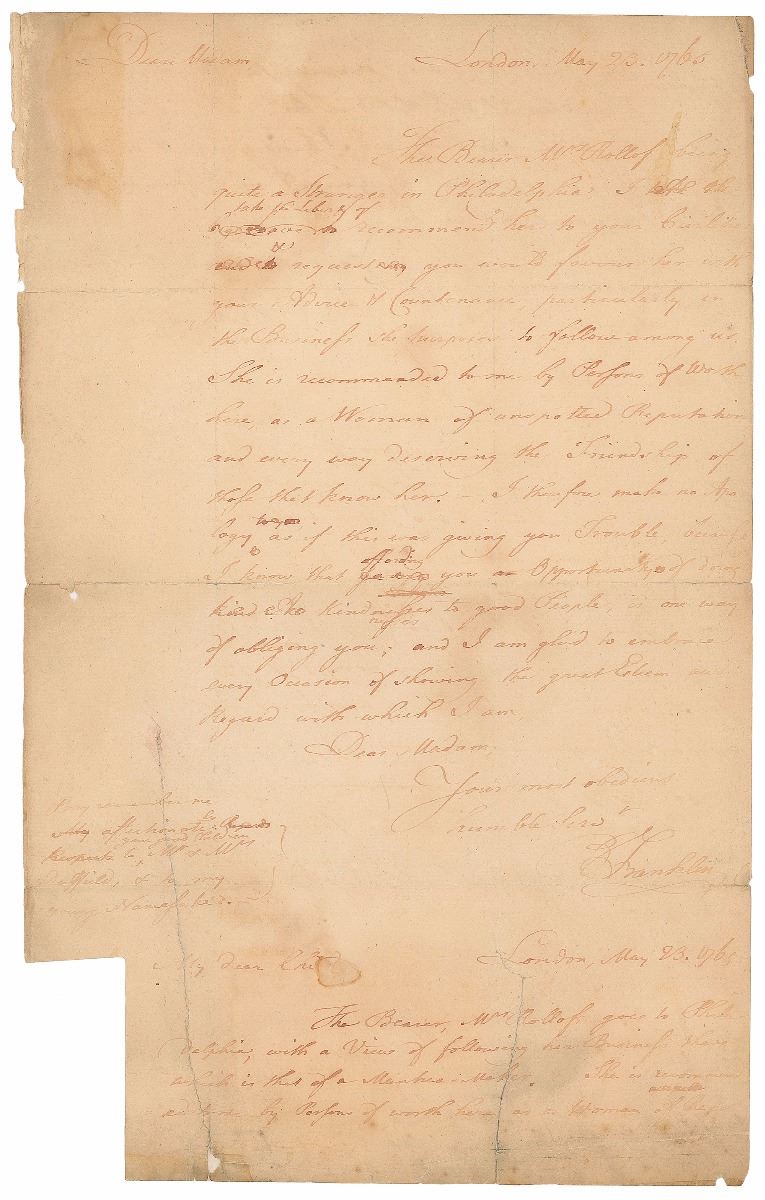 Dear Madam
London, May 23. 1765
The Bearer Mrs Rollof being
quite a Stranger in Philadelphia, I
take the Liberty of
to recommend her to your Civilities
and to request you would favour her with
your Advice & Countenance, particularly in
the Business she purposes to follow among us.
She is recommended to me by Persons of Worth
here, as a Woman of unspotted Reputation
and every way deserving the Friendship of
those that know her. — I therefore make no Apo
logy as if this was giving you Trouble, because
affording
I know that you an Opportunity of doing
Kindnesses to good People, is one way
of obliging you; and I am glad to embrace
every Occasion of showing the great Esteem and
Regard with which I am,
Dear Madam,
Your most obedient
humble Servt
B Franklin
Pray remember me
affectionately
Respects to Mr & Mrs
Duffield, & to my
young Namesake. —
My dear
London, May 23. 1765
The Bearer, Mrs Rollof goes to Phila
delphia, with a View of following her Business there
which is that of a Mantua-Maker. She is recommen
ed to me by Persons of worth here as a Woman of